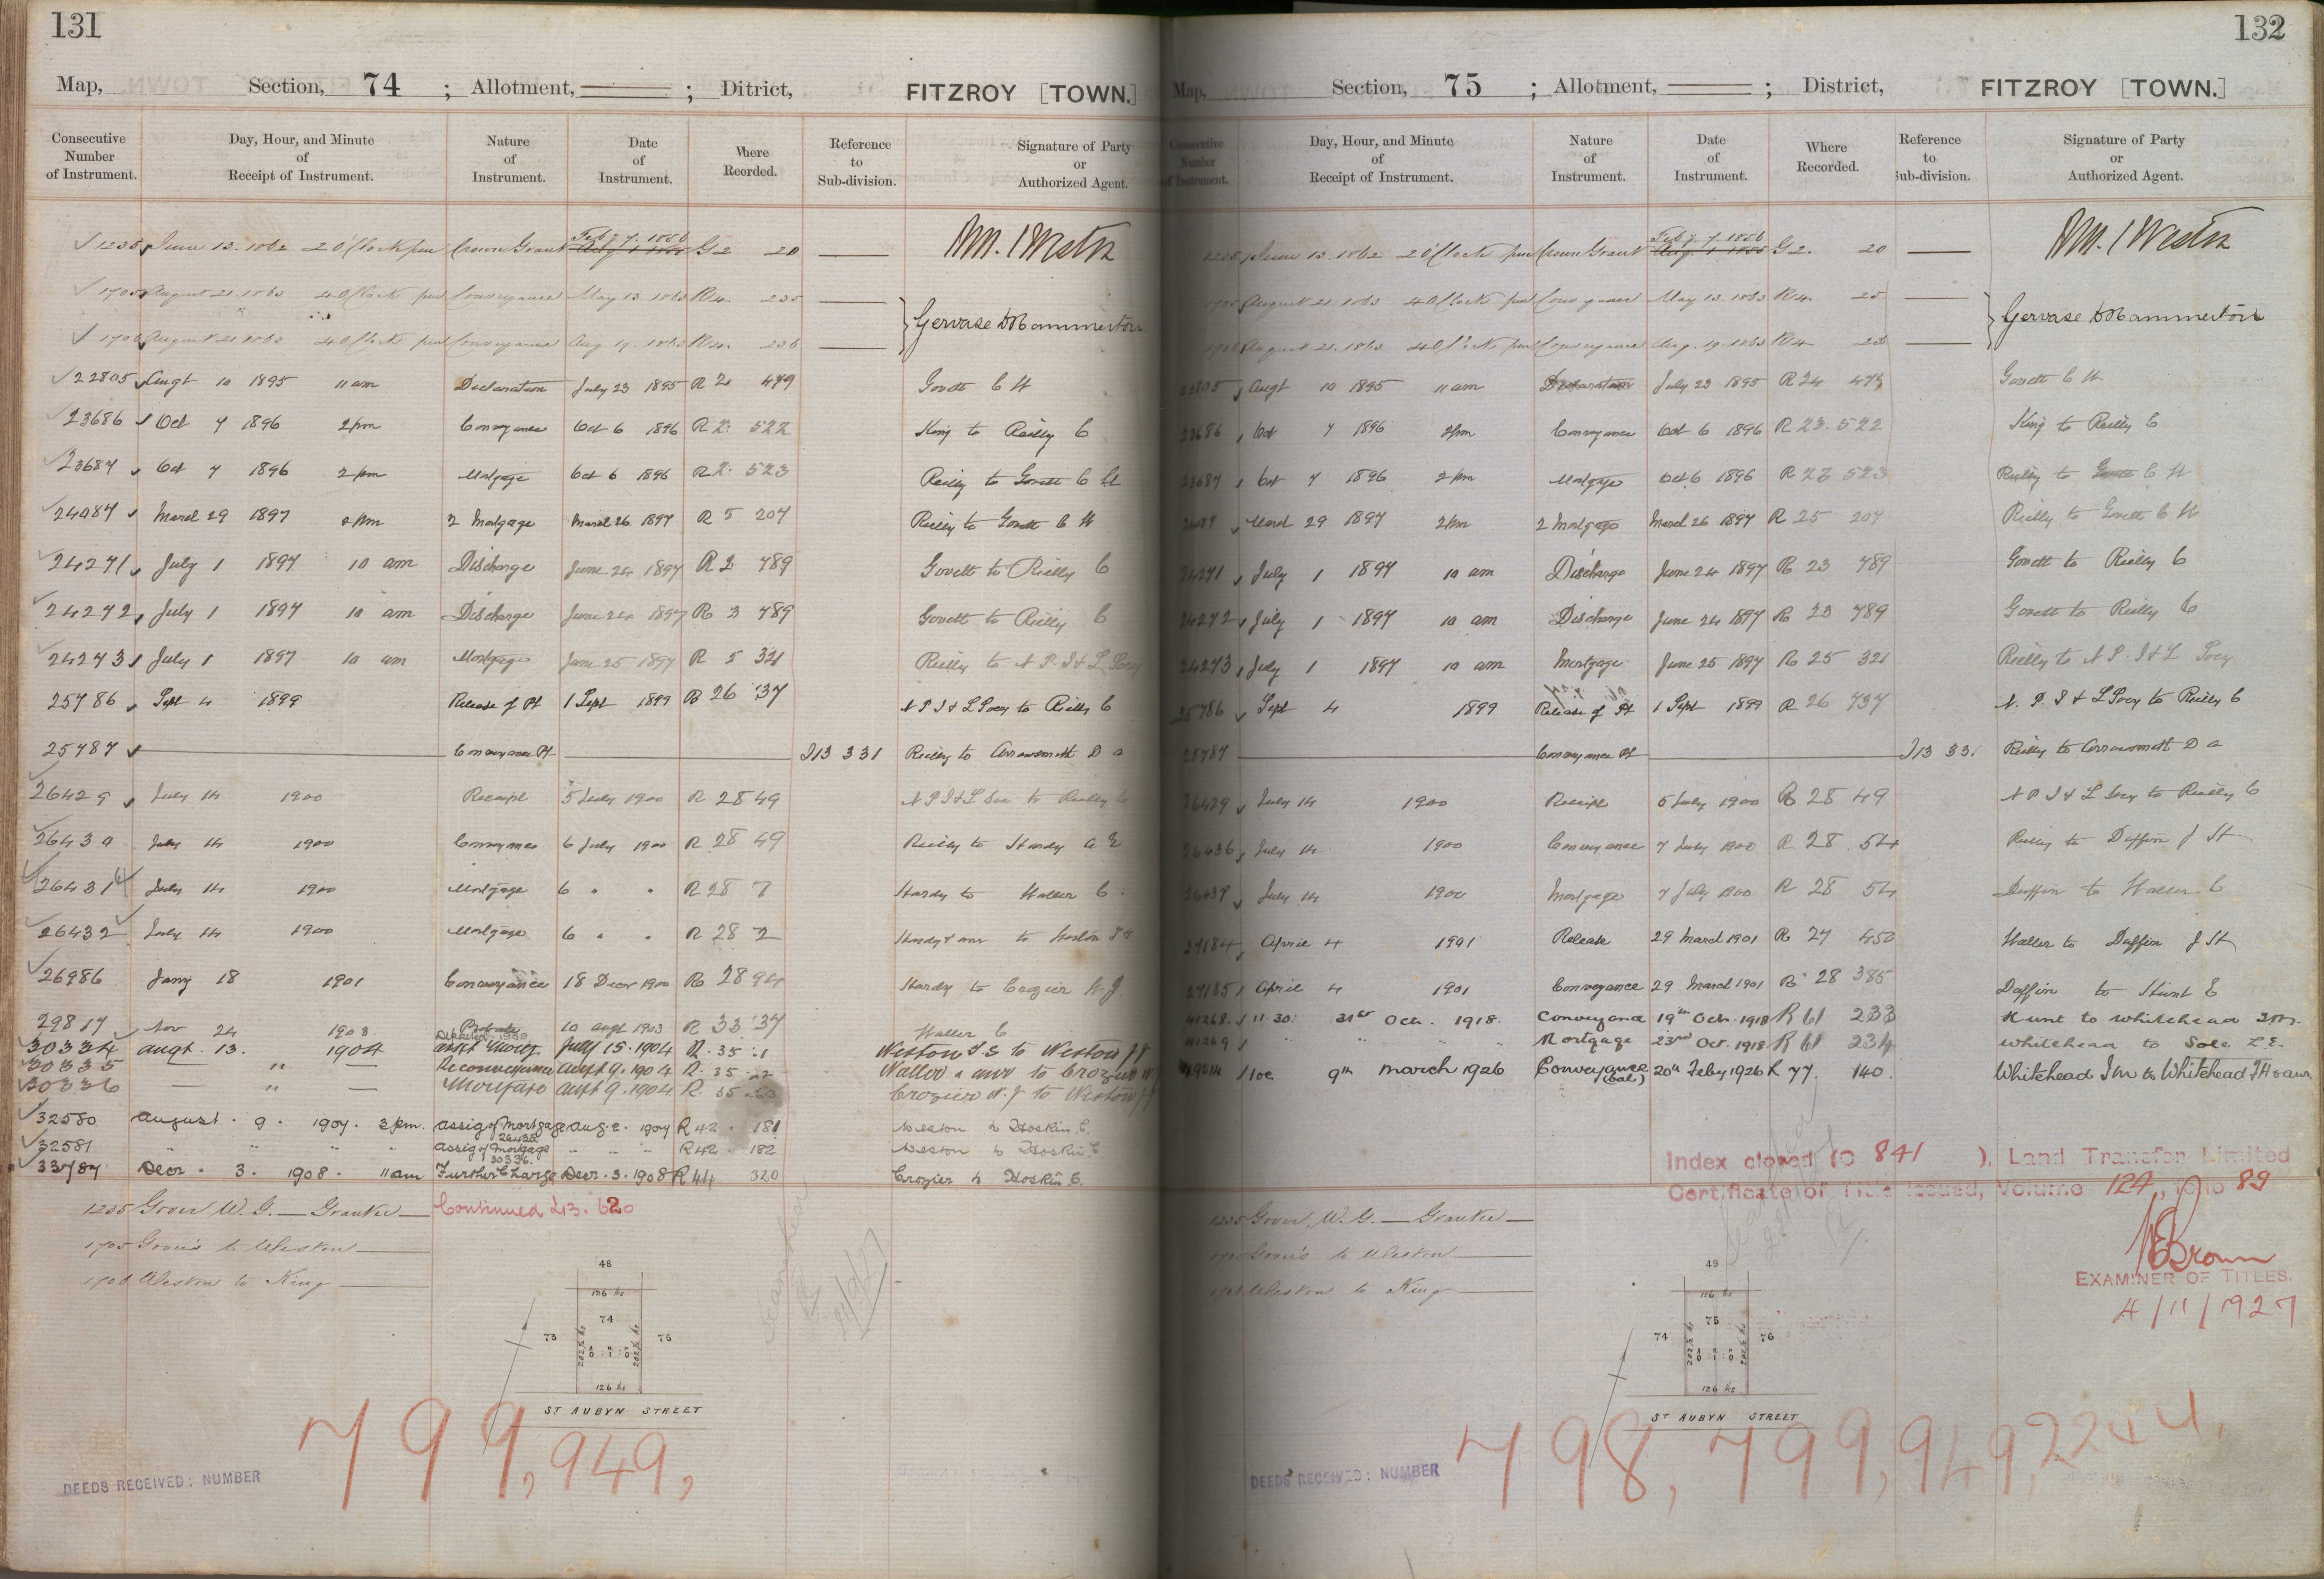 131
Map, Section, 74 ; Allotment, ; Ditrict, FITZROY [TOWN.]
Consecutive Number of Instrument. Day, Hour, and Minute of Receipt of Instrument. Nature of Instrument. Date of Instrument. Where Reorded. Reference to Sub-division. Signature of Party or Authorized Agent.
1235 June 13. 1862 2 O'Clock pm Crown Grant Feby 7. 1856 G 2 20
1705 August 21. 1863 4 O'Clock pm Conveyance May 13. 1863 R 4. 235
Gervase D Hammerton
1706 August 21 1863 4 O'Clock pm Conveyance Aug. 19. 1863 R 4. 236
22805 Augt 10 1895 11 am Declaration July 23 1895 R 2 479 Govett C H
23686 Oct 7 1896 2 pm Conveyance Oct 6 1896 R 2 522 King to Reilly C
23687 Oct 7 1896 2 pm Mortgage Oct 6 1896 R 2 523 Reilly to Govett C H
24087 March 29 1897 2 pm 2 Mortgage March 26 1897 R 5 207 Reilly to Govett C H
24271 July 1 1897 10 am Discharge June 24 1897 R 2 789 Govett to Reilly C
24272 July 1 1897 10 am Discharge June 24 1897 R 3 789 Govett to Reilly C
24273 July 1 1897 10 am Mortgage June 25 1897 R 5 321 Reilly to N P. I & L Socy
25786 Sept 4 1899 Release of Pt 1 Sept 1899 R 26 737 N P I & L Socy to Reilly C
25787 Conveyance Pt I 13 331 Reilly to Arrowsmith D a
26429 July 14 1900 Receipt 5 July 1900 R 28 49 N P I & L Soc to Reilly C
26430 July 14 1900 Conveyance 6 July 1900 R 28 49 Reilly to Hardy a E
26431 July 14 1900 Mortgage 6 " " R 28 7 Hardy to Waller C
26432 July 14 1900 Mortgage 6 " " R 28 2 Hardy & anr to Weston
26986 Jany 18 1901 Conveyance 18 Decr 1900 R 28 94 Hardy to Crozier W. J.
29817 Nov 24 1903 Probate 10 augt 1903 R 33 737 Waller C
30334 augt. 13. 1904 July 15. 1904 R. 35 Weston T. S to Weston
30335 — " — Reconveyance augt 9. 1904 R. 35 22 Waller & anr to Crozier W
30336 — " — Mortgage augt 9. 1904 R. 35 Crozier W. J to Weston
32580 august. 9. 1907. 3 pm. assig of Mortgage Aug. 2. 1907 R 42. 181 Weston to Hoskin. C.
32581 " " " " assig of Mortgage 30336. " " " R 42. 182 Weston to Hoskin. C
33787 Decr. 3. 1908. 11 am Further Charge Decr. 3. 1908 R 44 320 Crozier to Hoskin C.
1235 Gover W. G. — Grantee — Continued L 13. 620
1705 Gover to Weston
1706 Weston to King
48
126 lks
74
73 75
202½ lks 202½ lks
A R P
0 : 1 : 0
126 lks
ST AUBYN STREET
799, 949,
DEEDS RECEIVED: NUMBER
132
Map, Section, 75 ; Allotment, ; District, FITZROY [TOWN.]
Consecutive Number of Instrument. Day, Hour, and Minute of Receipt of Instrument. Nature of Instrument. Date of Instrument. Where Recorded. Reference to Sub-division. Signature of Party or Authorized Agent.
1235 June 13. 1862 2 O'Clock pm Crown Grant Feby 7. 1856 G 2. 20
1705 August 21. 1863 4 O'Clock pm Conveyance May 13. 1863 R 4.
Gervase D Hammerton
1706 August 21. 1863 4 O'Clock pm Conveyance Aug. 19. 1863 R 4
22805 Augt 10 1895 11 am Declaration July 23 1895 R 24 479 Govett C H
23686 Oct 7 1896 2 pm Conveyance Oct 6 1896 R 23. 522 King to Reilly C
23687 Oct 7 1896 2 pm Mortgage Oct 6 1896 R 23 523 Reilly to Govett C H
24087 March 29 1897 2 pm 2 Mortgage March 26 1897 R 25 207 Reilly to Govett C H
24271 July 1 1897 10 am Discharge June 24 1897 R 23 789 Govett to Reilly C
24272 July 1 1897 10 am Discharge June 24 1897 R 23 789 Govett to Reilly C
24273 July 1 1897 10 am Mortgage June 25 1897 R 25 321 Reilly to N P. I & L Socy
25786 Sept 4 1899 Release of Pt 1 Sept 1899 R 26 737 N. P. I & L Socy to Reilly C
25787 Conveyance Pt I 13 331 Reilly to Arrowsmith D a
26429 July 14 1900 Receipt 5 July 1900 R 28 49 N P I & L Socy to Reilly C
26436 July 14 1900 Conveyance 7 July 1900 R 28 54 Reilly to Duffin J H
26437 July 14 1900 Mortgage 7 July 1900 R 28 54 Duffin to Waller C
27184 April 4 1901 Release 29 March 1901 R 27 450 Waller to Duffin J H
27185 April 4 1901 Conveyance 29 March 1901 R 28 385 Duffin to Hunt E
41268. 11.30: 31st Oct. 1918. Conveyance 19th Oct. 1918 R 61 233 Hunt to Whitehead I M.
41269 " " " Mortgage 23rd Oct. 1918 R 61 234 Whitehead to Sole L. E.
10c 9th March 1926 Conveyance (bal) 20th Feby 1926 R 77. 140. Whitehead I M to Whitehead J H & anr
Index closed 841 ), Land Transfer Limited
Certificate of Title Issued, Volume 124, folio 89
Brown
EXAMINER OF TITLES.
4/11/1927
1235 Gover, W. G. — Grantee —
1705 Gover to Weston
1706 Weston to King
49
126 lks
75
74 76
202½ lks 202½ lks
A R P
0 : 1 : 0
126 lks
ST AUBYN STREET
798, 799, 949, 2244,
DEEDS RECEIVED: NUMBER